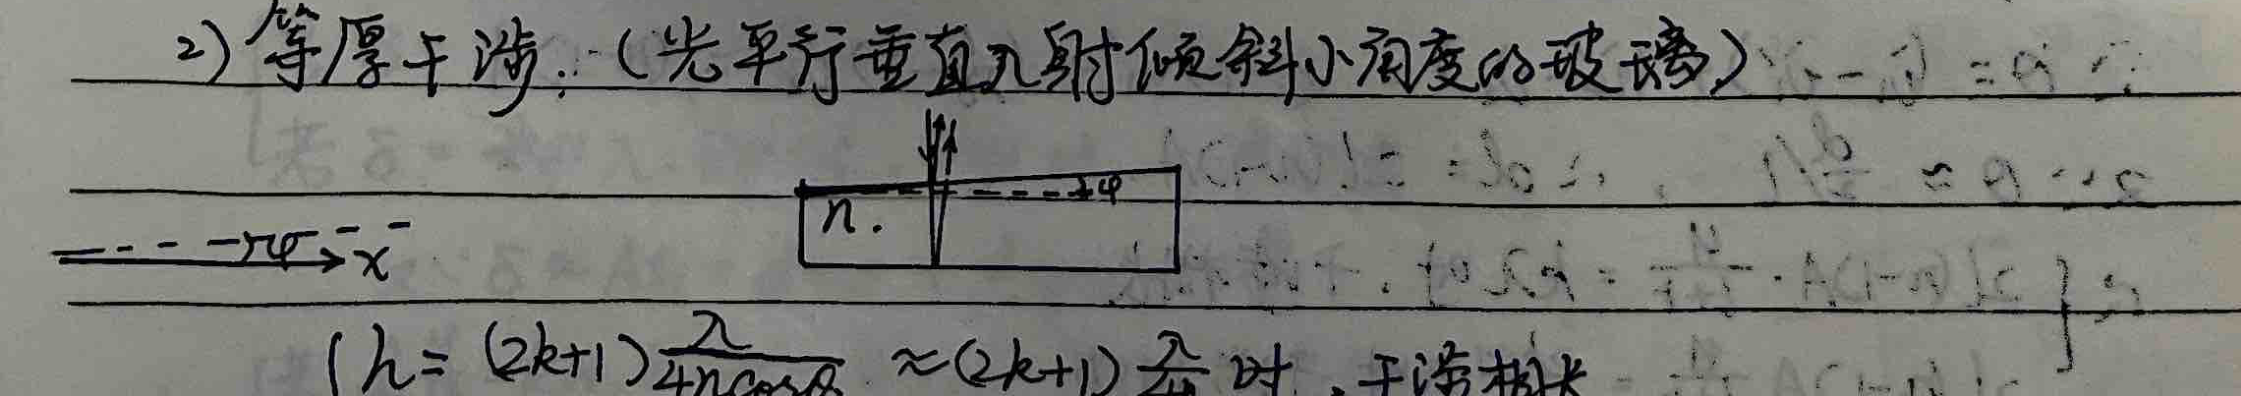 2) 等厚干涉:(光平行垂直入射倾斜小角度的玻璃)
φ
n.
φ x
{ h = (2k+1) λ/4ncosθ ≈ (2k+1) λ/4n 时,干涉相长